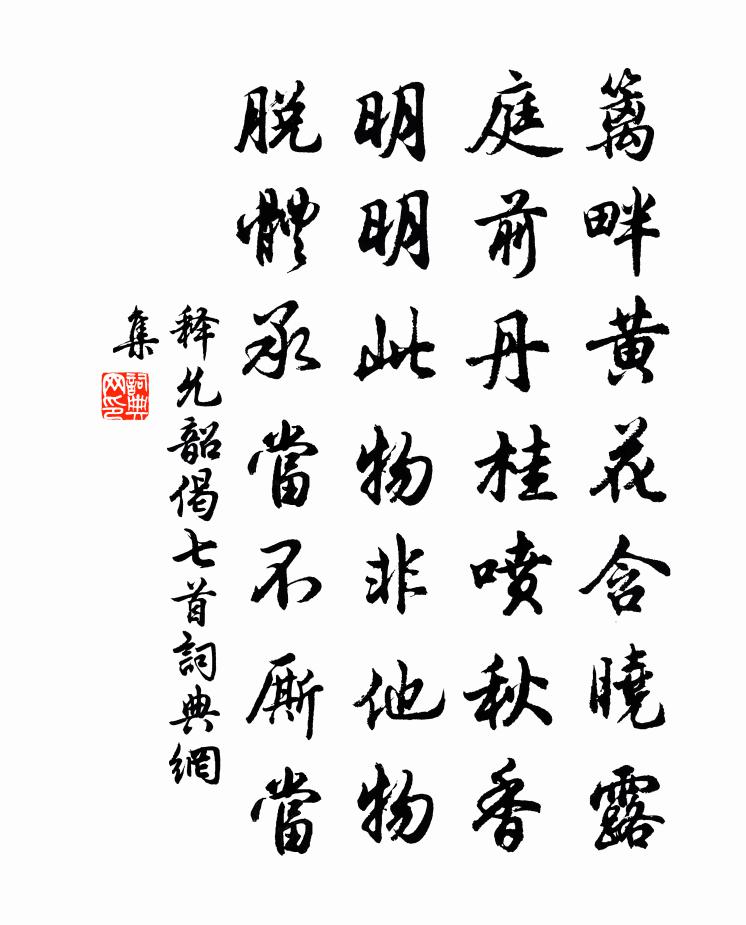 籬畔黃花含曉露
庭前丹桂噴秋香
明明此物非他物
脫體承當不厮當
释允韶偈七首詞典網
集
詞典
网印